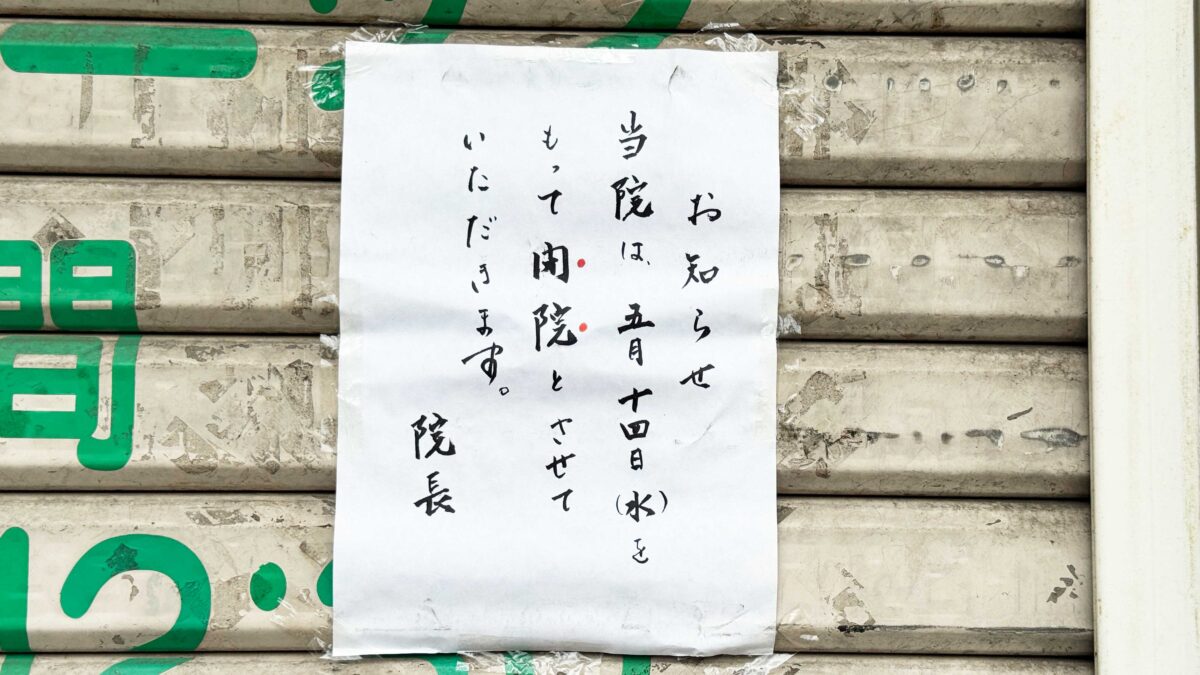 お知らせ
当院は、五月十四日(水)を
もって閉院とさせて
いただきます。
院長
間
12: